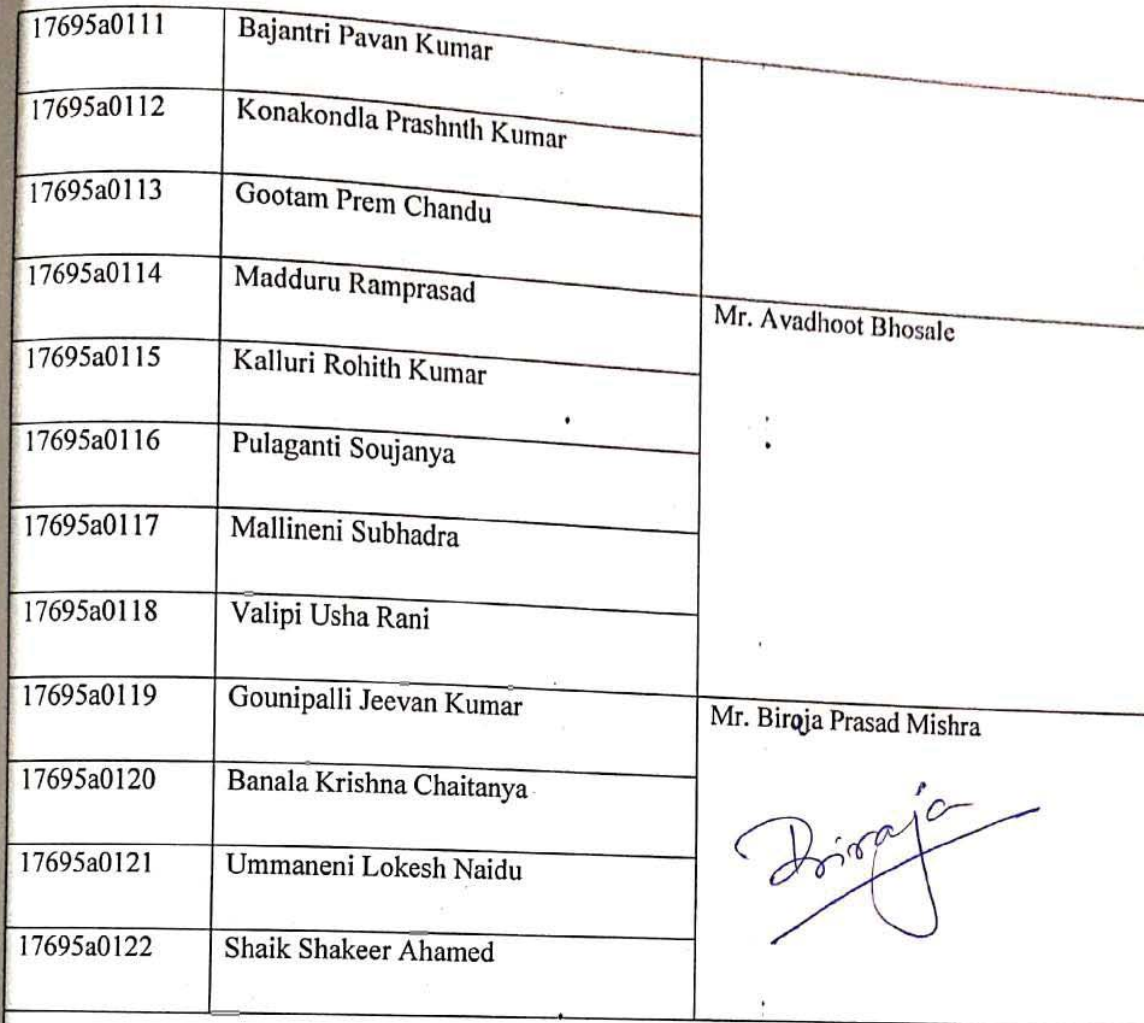 17695a0111 Bajantri Pavan Kumar
17695a0112 Konakondla Prashnth Kumar
17695a0113 Gootam Prem Chandu
17695a0114 Madduru Ramprasad Mr. Avadhoot Bhosale
17695a0115 Kalluri Rohith Kumar
17695a0116 Pulaganti Soujanya
17695a0117 Mallineni Subhadra
17695a0118 Valipi Usha Rani
17695a0119 Gounipalli Jeevan Kumar Mr. Biraja Prasad Mishra
17695a0120 Banala Krishna Chaitanya
Biraja
17695a0121 Ummaneni Lokesh Naidu
17695a0122 Shaik Shakeer Ahamed